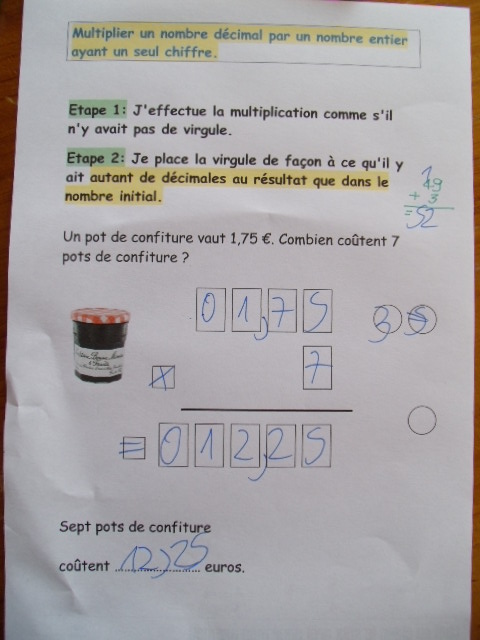 Multiplier un nombre décimal par un nombre entier
ayant un seul chiffre.
Etape 1: J'effectue la multiplication comme s'il
n'y avait pas de virgule.
Etape 2: Je place la virgule de façon à ce qu'il y
ait autant de décimales au résultat que dans le
nombre initial.
1
49
+ 3
= 52
Un pot de confiture vaut 1,75 €. Combien coûtent 7
pots de confiture ?
01,75
3 5
x 7
= 012,25
Sept pots de confiture
coûtent 12,25 euros.